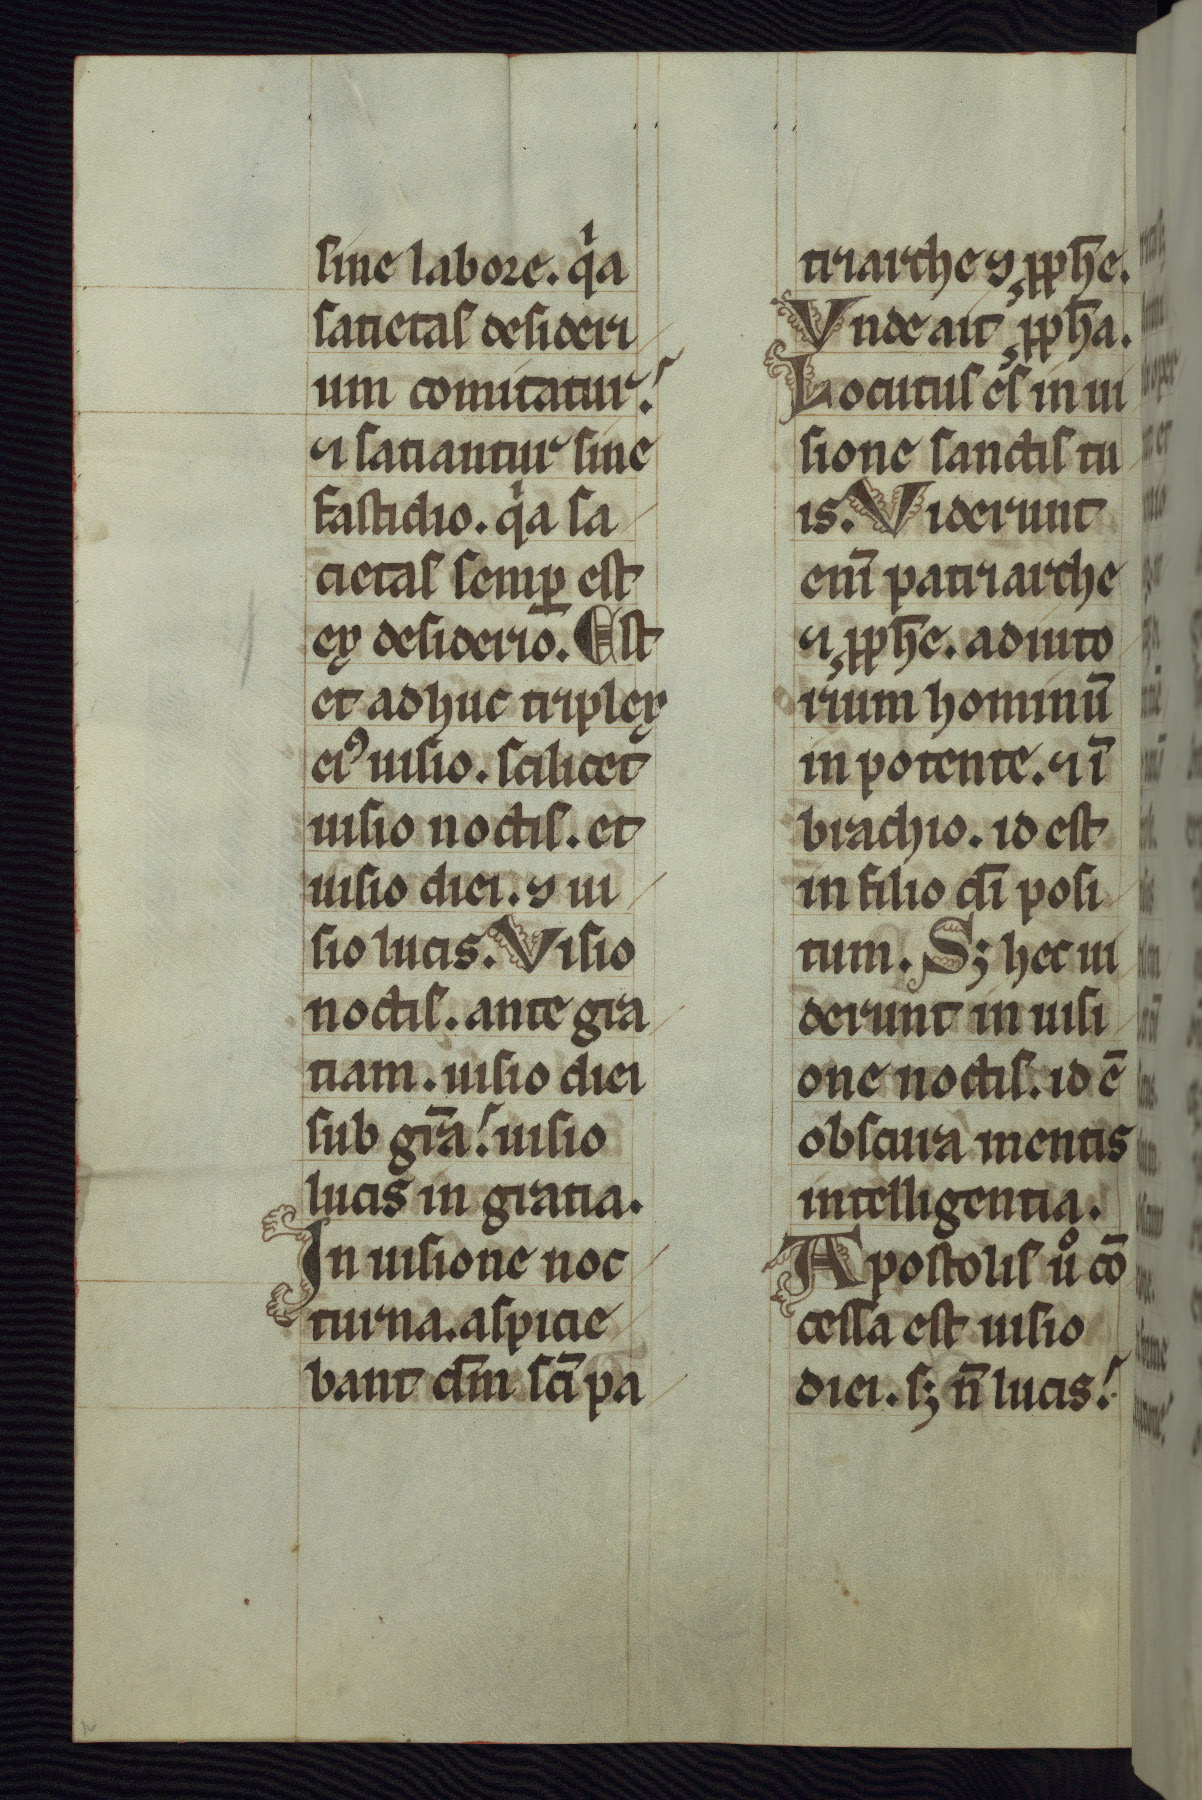 sine labore. qͥa
satietas desideri
um comitatur.
⁊ satiantur sine
fastidio. qͥa sa
cietas semꝑ est
ex desiderio. Est
et adhuc triplex
eiꝰ uisio. scilicet
uisio noctis. et
uisio diei. ⁊ ui
sio lucis. Visio
noctis. ante gra
tiam. uisio diei
sub gr̄a. uisio
lucis in gratia.
In uisione noc
turna. aspicie
bant dn̄m sc̄i pa
triarche ⁊ ꝓph̄e.
Vnde ait ꝓph̄a.
Locutus es in ui
sione sanctis tu
is. Viderunt
eni̅ patriarche
⁊ ꝓph̄e. adiuto
rium hominū
in potente. ⁊ ī
brachio. id est
in filio dī posi
tum. Sꝫ hec ui
derunt in uisi
one noctis. id ē
obscura mentis
intelligentia.
Apostolis uͦ cō
cessa est uisio
diei. sꝫ n̄ lucis.